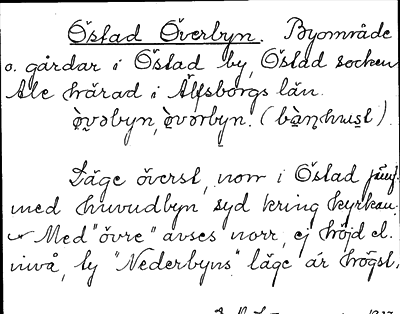 Östad Överbyn. Byområde
o. gårdar i Östad by, Östad socken
Ale härad i Älfsborgs län.
Läge överst, norr i Östad jämf.
med huvudbyn syd kring kyrkan.
Med "övre" avses norr, ej höjd el.
nivå, ty "Nederbyns" läge är högst.